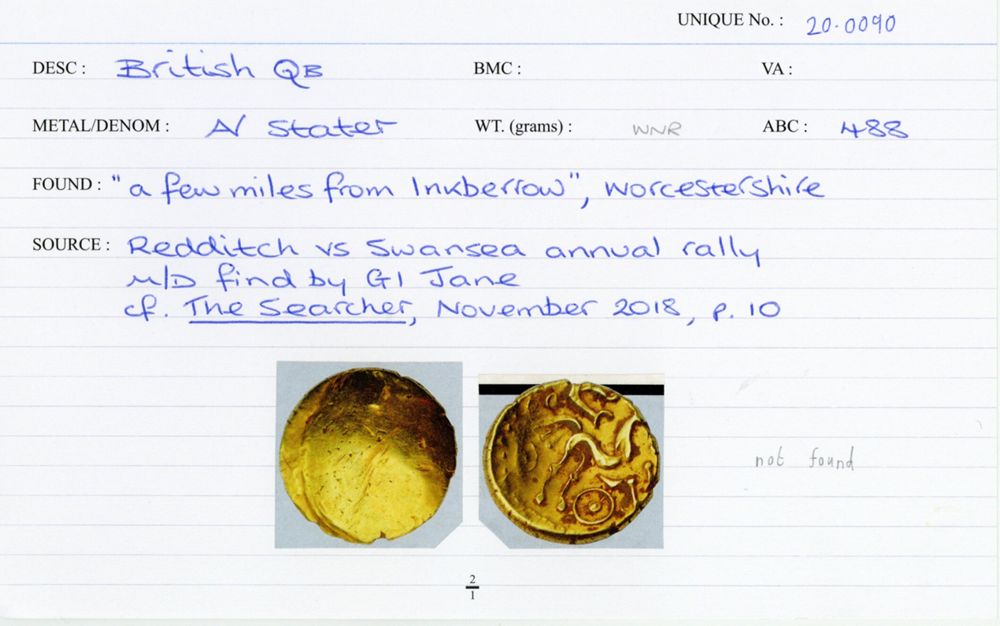 UNIQUE No. : 20.0090
DESC : British QB BMC : VA :
METAL/DENOM : AV Stater WT. (grams) : WNR ABC : 488
FOUND : "a few miles from Inkberrow", Worcestershire
SOURCE : Redditch vs Swansea annual rally
M/D find by GI Jane
cf. The Searcher, November 2018, p. 10
not found
2
1